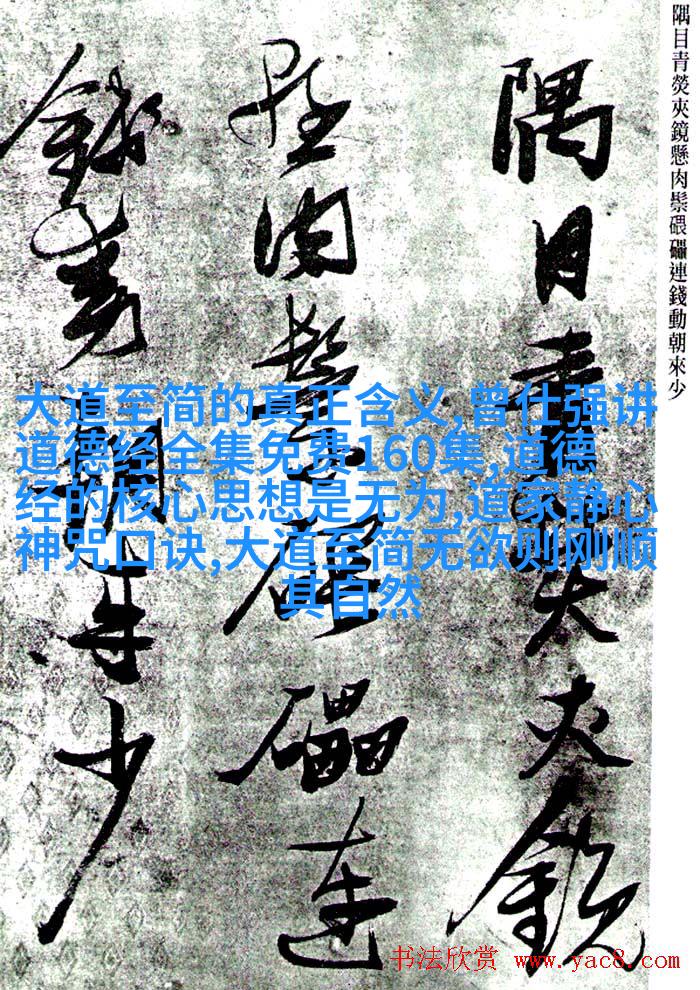 隅目青熒夾鏡懸肉鬃碨礧連錢動朝來少
隅目青熒夾鏡
懸肉鬃碨礧連
錢動朝來少
大道至简的真正含义,曾仕强讲
道德经全集免费160集,道德
经的核心思想是无为,道家静心
神咒口诀,大道至简无欲则刚顺
其自然
书法欣赏 www.yac8.com